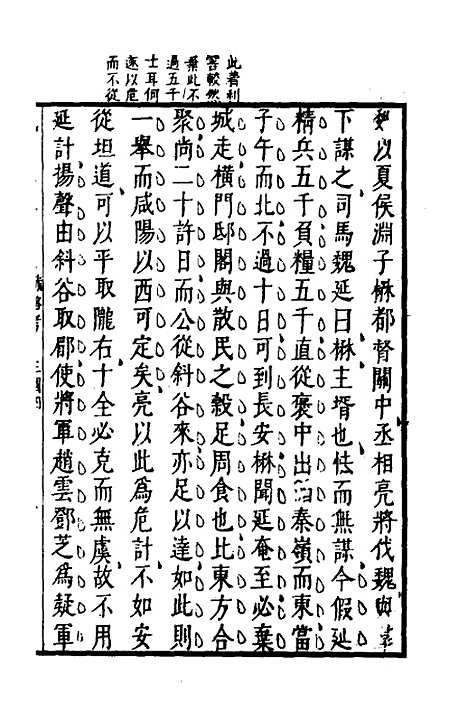 此着利
害較然
棄此不
過五千
士耳何
遽以危
而不從
魏以夏侯淵子楙都督關中丞相亮將伐魏與羣
下謀之司馬魏延曰楙主壻也怯而無謀今假延
精兵五千負糧五千直從褒中出循秦嶺而東當
子午而北不過十日可到長安楙聞延奄至必棄
城走橫門邸閣與散民之榖足周食也比東方合
聚尚二十許日而公從斜谷來亦足以達如此則
一舉而咸陽以西可定矣亮以此為危計不如安
從坦道可以平取隴右十全必克而無虞故不用
延計揚聲由斜谷取郿使將軍趙雲鄧芝為疑軍
三國四